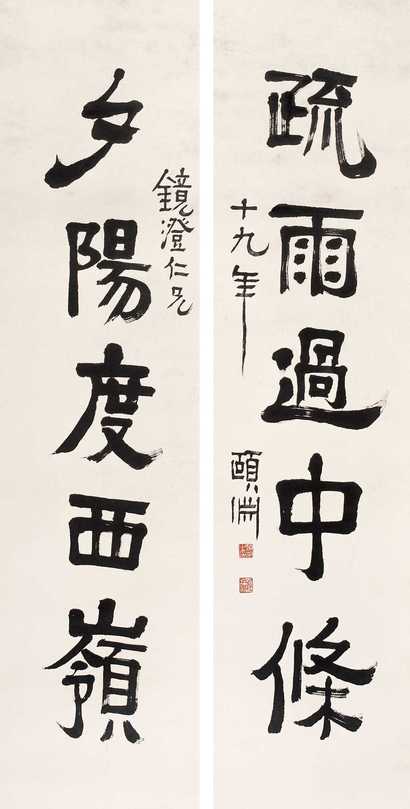 疏雨過中條
十九年
頤淵
鏡澄仁兄
夕陽度西嶺